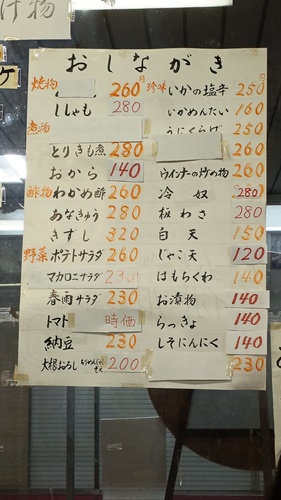 け物
ケ
おしながき
焼物 260円
ししゃも 280
煮物
とりきも煮 280
おから 140
酢物 わかめ酢 260
あなきゅう 280
きずし 320
野菜 ポテトサラダ 260
マカロニサラダ 230
春雨サラダ 230
トマト 時価
納豆 230
大根おろし 200
珍味 いかの塩辛 250円
いかめんたい 160
うにくらげ 250
260
ウインナーの炒め物 260
冷奴 280
板わさ 280
白天 150
じゃこ天 120
はもちくわ 140
お漬物 140
らっきょ 140
しそにんにく 140
230